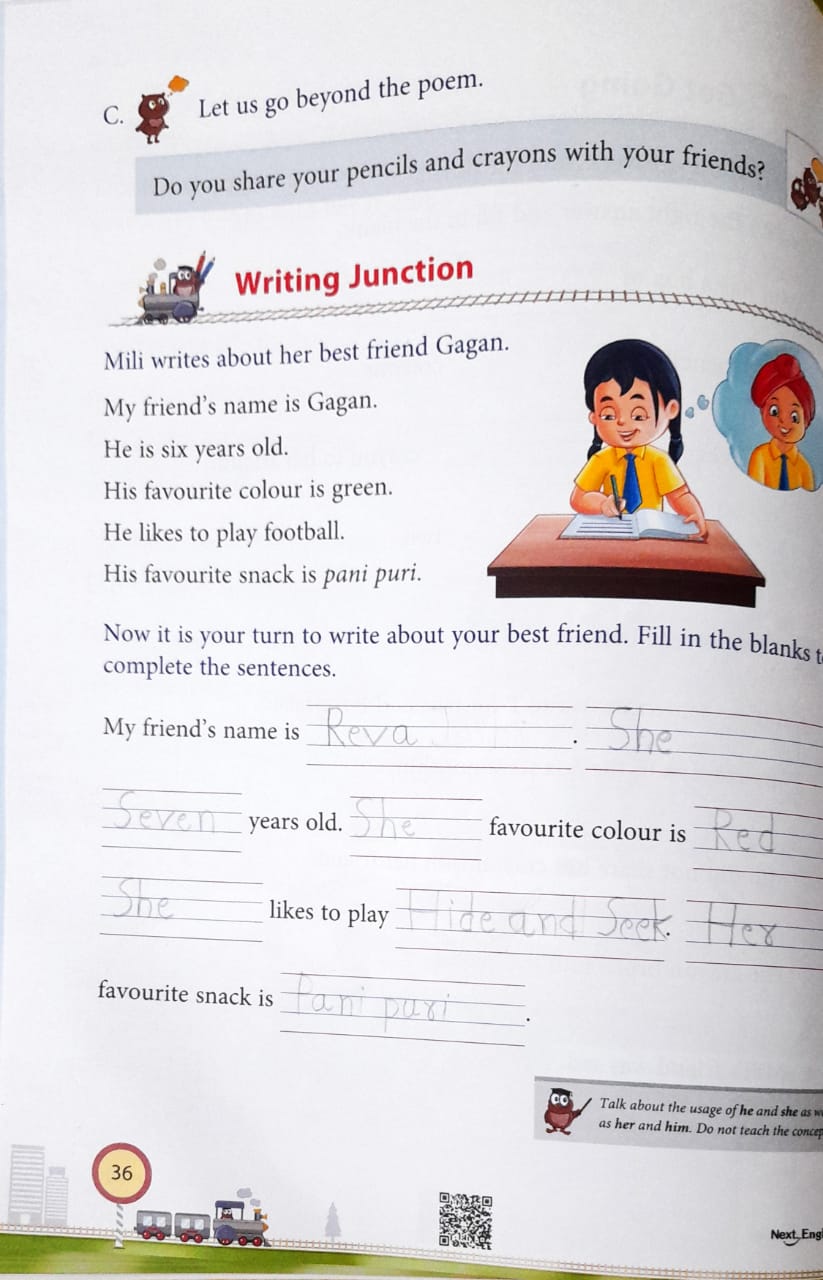 C. Let us go beyond the poem.
Do you share your pencils and crayons with your friends?
Writing Junction
Mili writes about her best friend Gagan.
My friend's name is Gagan.
He is six years old.
His favourite colour is green.
He likes to play football.
His favourite snack is pani puri.
Now it is your turn to write about your best friend. Fill in the blanks
complete the sentences.
My friend's name is Reva . She
Seven years old. She favourite colour is Red
She likes to play Hide and Seek. Her
favourite snack is Pani puri .
Talk about the usage of he and she as
as her and him. Do not teach the
36
Next